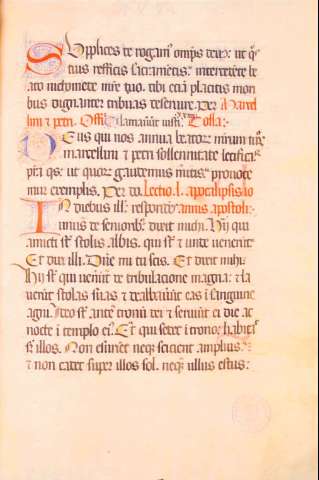 Supplices te rogam' omps deus: ut q's
tuis reficis sacramētis: intercedēte be
ato nichomede mr̄e tuo. tibi etiā placitis mori
bus dignanter tribuas deseruire. per Marcel
lini & petri. Offm Clamauer̄t iusti. Co ssa:
Deus qui nos annua beator̄ mr̄um tuor̄
marcellini & petri sollennitate letificas:
p̄sta q̄s: ut quor̄ gaudemus mitis: prouoce
mur exemplis. Per do. Lectio.l. apocalipsis io
In diebus ill: respondit annis apostoli:
unus de seniorib: dixit michi. Hij qui
amicti st̄ stolis albis. qui st̄ & unde uenerūt
Et dixi illi. Dn̄e mi tu scis. Et dixit mihi.
Hij st̄ qui uenūt de tribulacione magna: & la
uerūt stolas suas & dealbauer̄t eas ī sanguine
agni. Ideo st̄ ante tronū dei & seruiūt ei die ac
nocte ī templo ei'. Et qui sedet ī trono: habita
st̄ illos. Non esurient neq; scicient amplius:
& non cadet super illos sol. neq; ullus estus: